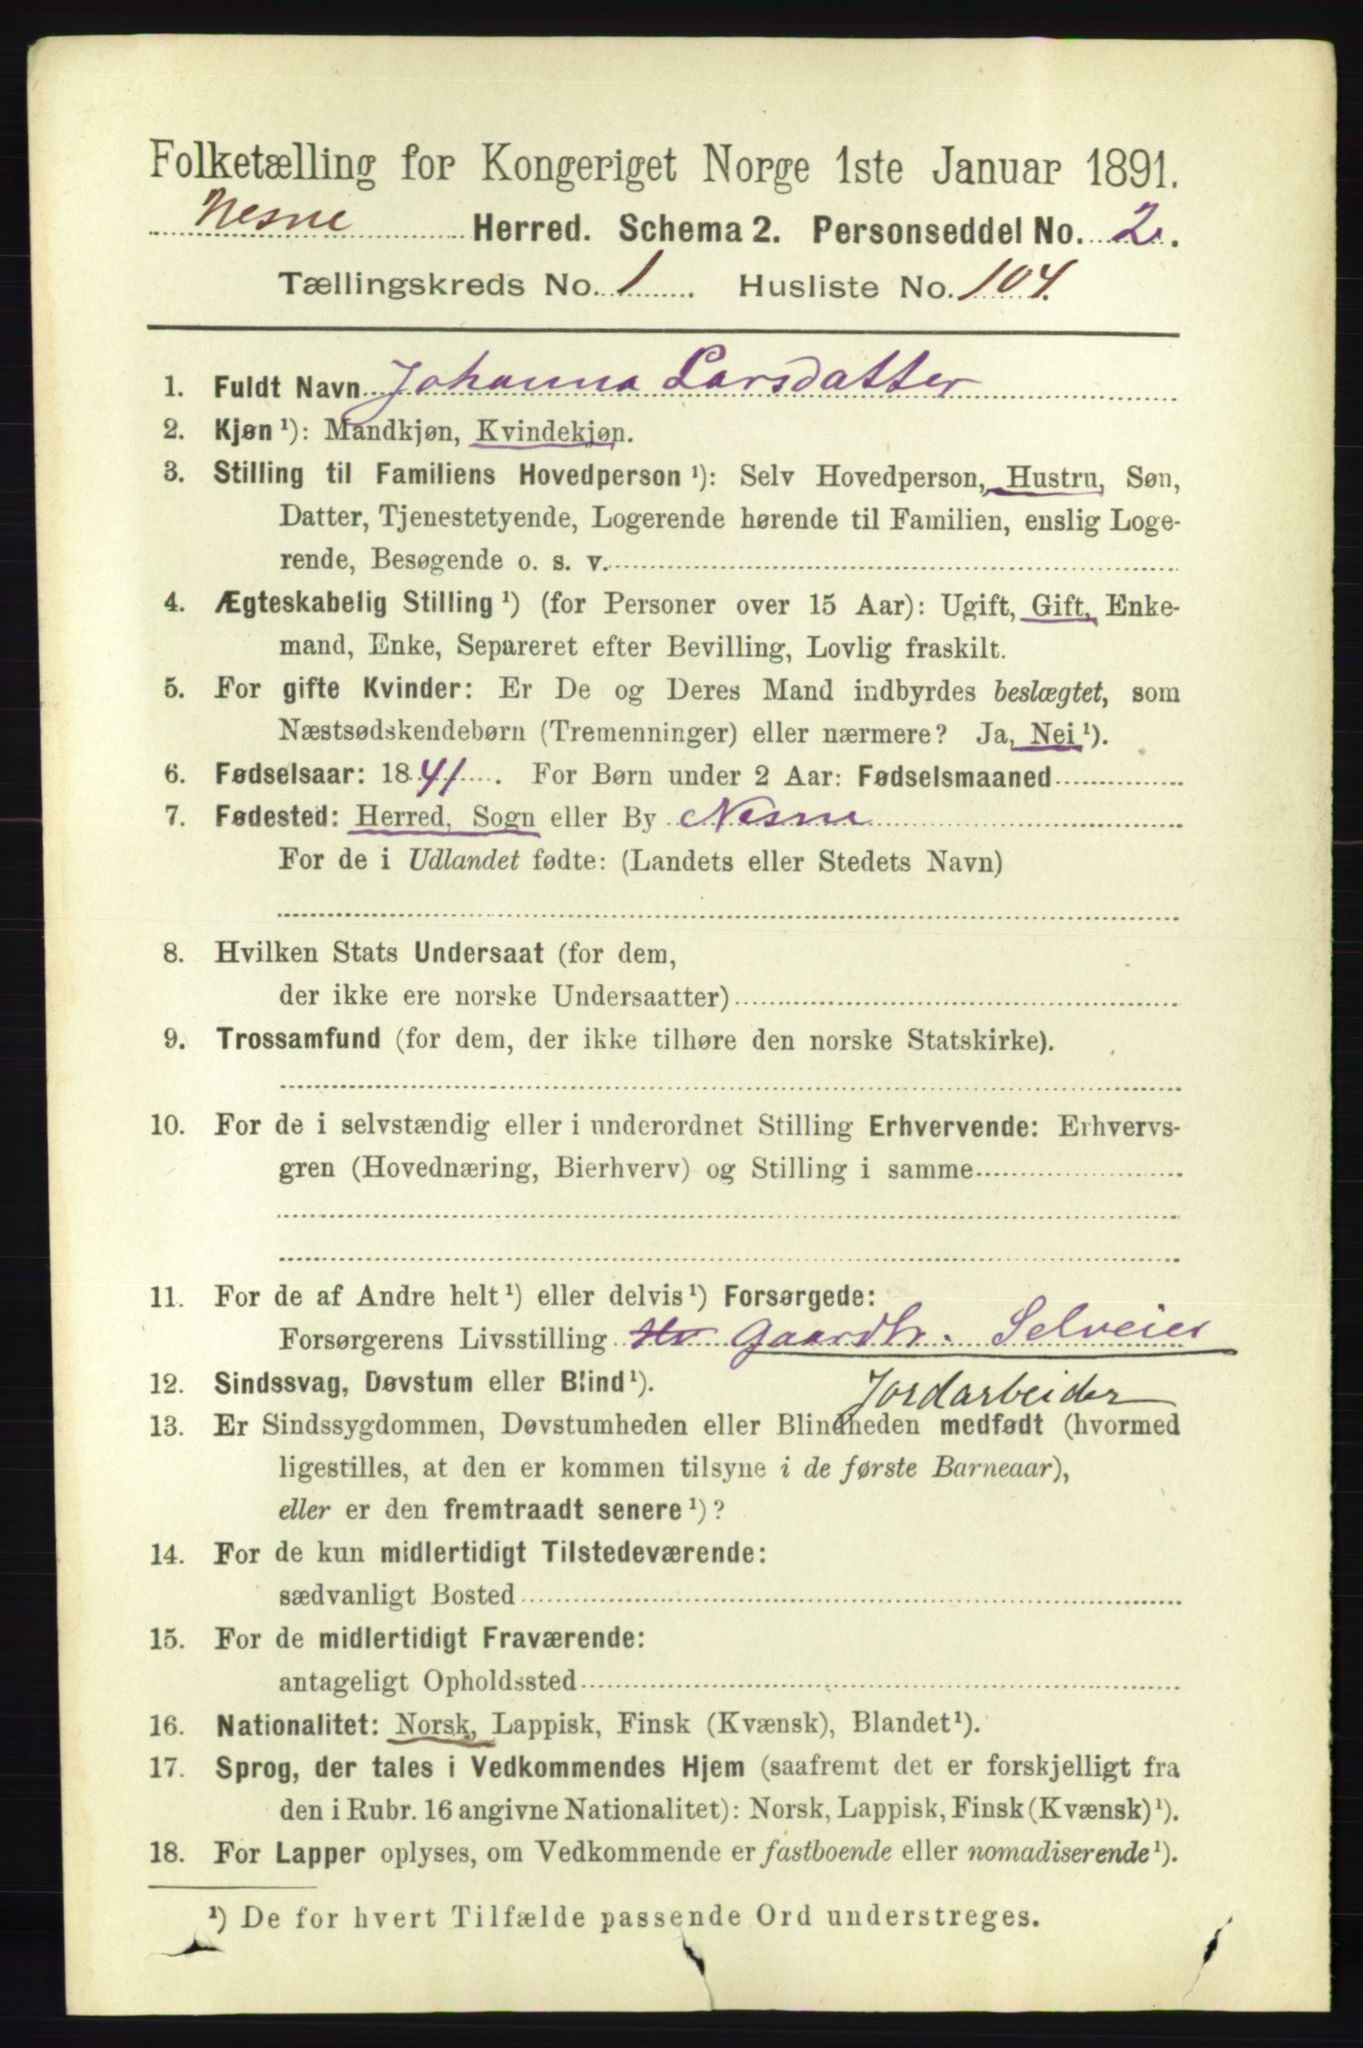 Folketælling for Kongeriget Norge 1ste Januar 1891.
Nesne Herred. Schema 2. Personseddel No. 2.
Tællingskreds No. 1 Husliste No. 104.
1. Fuldt Navn Johanna Larsdatter
2. Kjøn ¹): Mandkjøn, Kvindekjøn.
3. Stilling til Familiens Hovedperson ¹): Selv Hovedperson, Hustru, Søn,
Datter, Tjenestetyende, Logerende hørende til Familien, enslig Loge-
rende, Besøgende o. s. v.
4. Ægteskabelig Stilling ¹) (for Personer over 15 Aar): Ugift, Gift, Enke-
mand, Enke, Separeret efter Bevilling, Lovlig fraskilt.
5. For gifte Kvinder: Er De og Deres Mand indbyrdes beslægtet, som
Næstsødskendebørn (Tremenninger) eller nærmere? Ja, Nei ¹).
6. Fødselsaar: 1841. For Børn under 2 Aar: Fødselsmaaned
7. Fødested: Herred, Sogn eller By Nesne
For de i Udlandet fødte: (Landets eller Stedets Navn)
8. Hvilken Stats Undersaat (for dem,
der ikke ere norske Undersaatter)
9. Trossamfund (for dem, der ikke tilhøre den norske Statskirke).
10. For de i selvstændig eller i underordnet Stilling Erhvervende: Erhvervs-
gren (Hovednæring, Bierhverv) og Stilling i samme
11. For de af Andre helt ¹) eller delvis ¹) Forsørgede:
Forsørgerens Livsstilling Gaardbr. Selveier
12. Sindssvag, Døvstum eller Blind ¹). Jordarbeider
13. Er Sindssygdommen, Døvstumheden eller Blindheden medfødt (hvormed
ligestilles, at den er kommen tilsyne i de første Barneaar),
eller er den fremtraadt senere ¹)?
14. For de kun midlertidigt Tilstedeværende:
sædvanligt Bosted
15. For de midlertidigt Fraværende:
antageligt Opholdssted
16. Nationalitet: Norsk, Lappisk, Finsk (Kvænsk), Blandet ¹).
17. Sprog, der tales i Vedkommendes Hjem (saafremt det er forskjelligt fra
den i Rubr. 16 angivne Nationalitet): Norsk, Lappisk, Finsk (Kvænsk) ¹).
18. For Lapper oplyses, om Vedkommende er fastboende eller nomadiserende ¹).
¹) De for hvert Tilfælde passende Ord understreges.